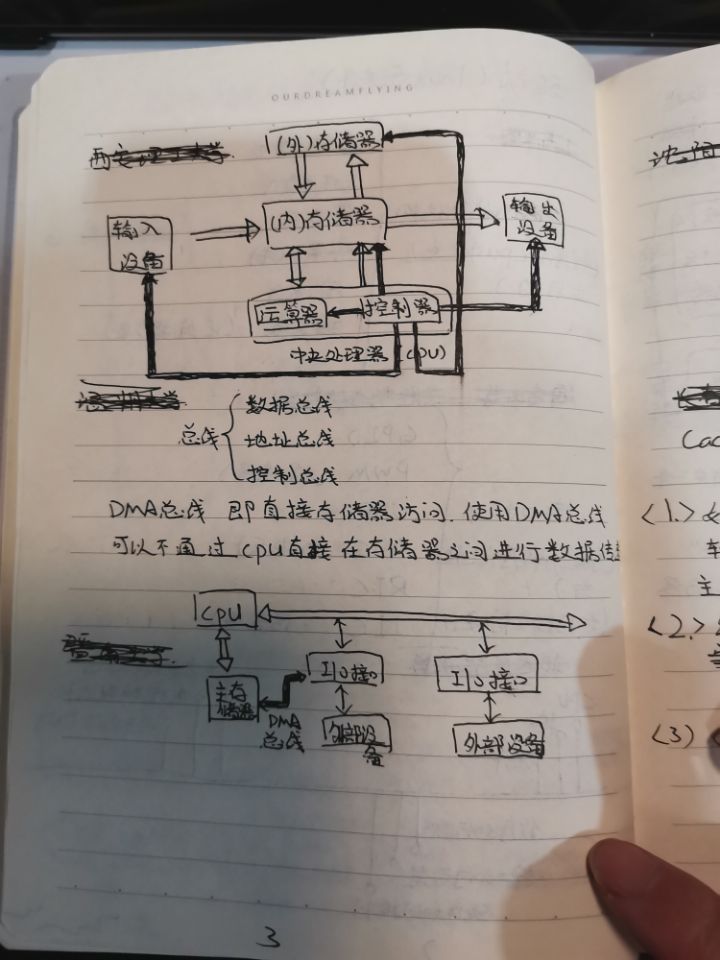 OURDREAMFLYING
(外)存储器
(内)存储器
输入
设备
输出
设备
运算器
控制器
中央处理器 (CPU)
总线
数据总线
地址总线
控制总线
DMA总线 即直接存储器访问. 使用DMA总线
可以不通过cpu直接在存储器之间进行数据传
CPU
主存
储器
DMA
总线
I/O接口
I/O接口
外部设
备
外部设备
3
沈阳
Cac
<1.>
主
<2.>
<3>